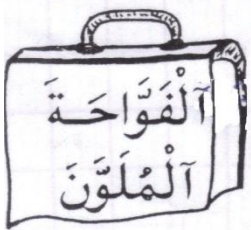 آلْفَوَّاحَةَ
آلْمُلَوَّنَ